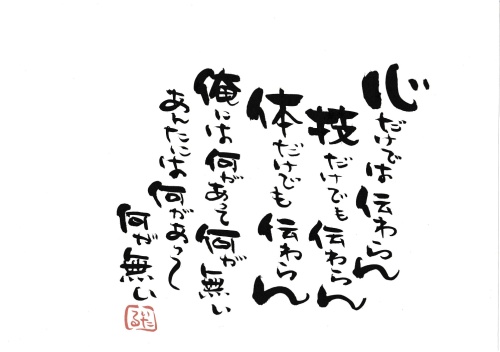 心だけでは伝わらん
技だけでも伝わらん
体だけでも伝わらん
俺には何があって何が無い
あんたには何があって
何が無い